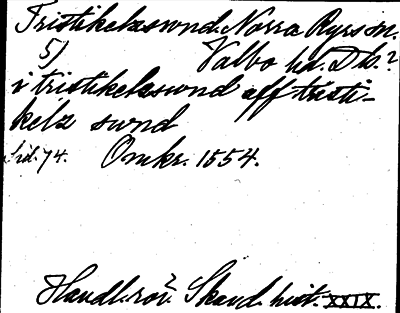 Tristikelzswnd. Norra Ryrs sn.
5) Valbo hd. Dls.?
i tristikelzswnd aff tristi-
kelz swnd
Sid. 74. Omkr. 1554.
Handl. rör. Skand. hist. XXIX.